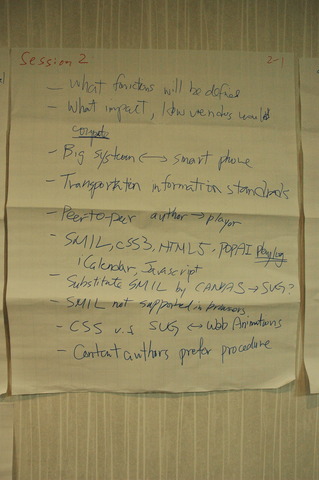 Session 2
2-1
- What functions will be define
- What impact, how vendors would
compete
- Big system <-> smart phone
- Transportation information standards
- Peer-to-peer author -> player
- SMIL, CSS3, HTML5, POPAI playlog
iCalendar, Javascript
- Substitute SMIL by CANVAS -> SVG?
- SMIL not supported in browsers
- CSS v.s SVG <-> Web Animations
- Content authors prefer procedure